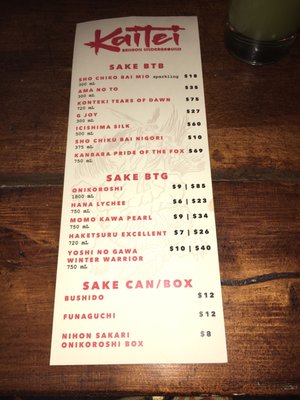 Kaitei
SAKE BTB
SHO CHIKO BAI MIO sparkling $18
300 mL
AMA NO TO $35
300 mL
KONTEKI TEARS OF DAWN $75
720 mL
G JOY $27
300 mL
ICISHIMA SILK $60
500 mL
SHO CHIKU BAI NIGORI $10
375 mL
KANBARA PRIDE OF THE FOX $69
750 mL
SAKE BTG
ONIKOROSHI $9 | $85
1800 mL
HANA LYCHEE $6 | $23
750 mL
MOMO KAWA PEARL $9 | $34
750 mL
HAKETSURU EXCELLENT $7 | $26
720 mL
YOSHI NO GAWA $10 | $40
WINTER WARRIOR
750 mL
SAKE CAN/BOX
BUSHIDO $12
FUNAGUCHI $12
NIHON SAKARI $8
ONIKOROSHI BOX